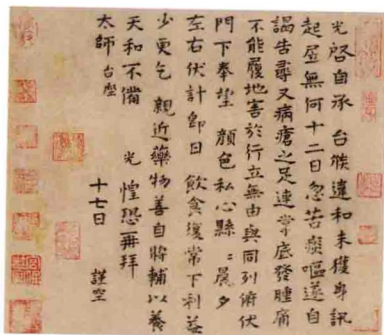 光啓自承 台候違和未獲身訊
起居無何十二日忽苦痰嘔遂自
謁告尋又病瘡之足連掌底發腫痛
不能履地害於行立無由與同列俯伏
門下奉望 顔色私心縣〻晨夕
左右伏計即日 飲食復常下利益
少更乞 親近藥物善自將輔以養
天和不備 光 惶恐再拜
太師 台座
十七日 謹空